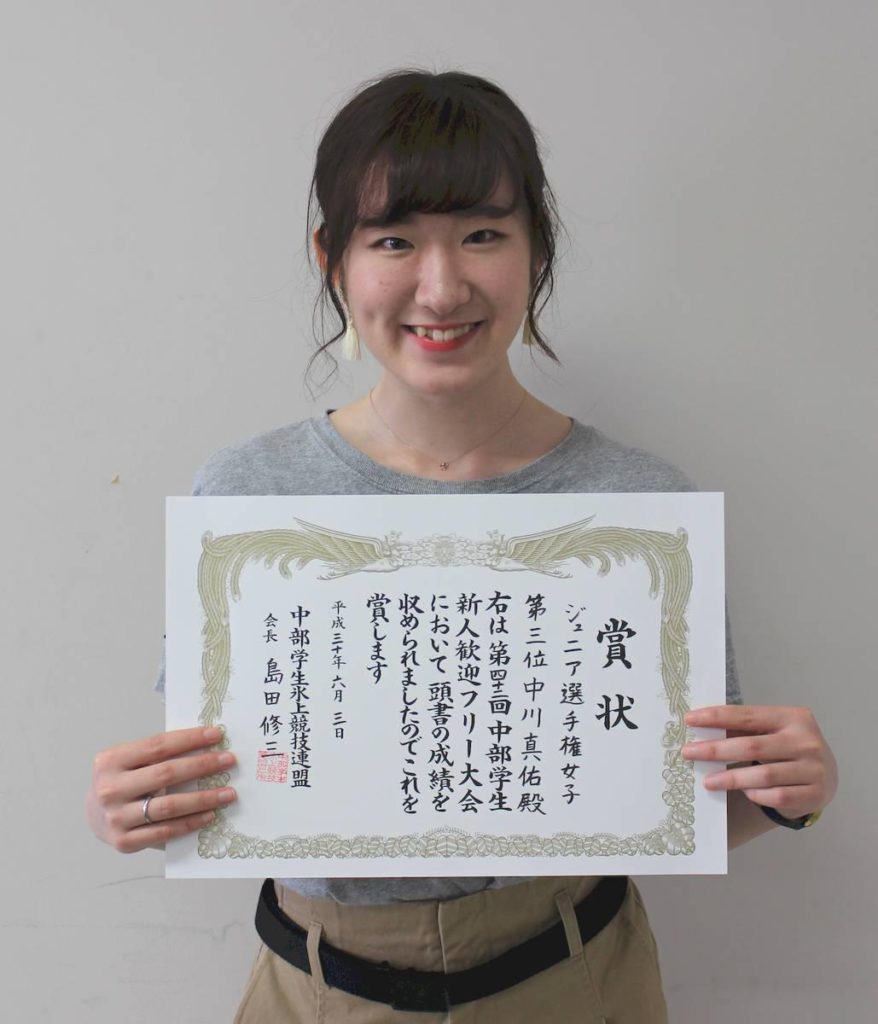 賞状
ジュニア選手権女子
第三位中川真佑殿
右は第四十三回中部学生
新人歓迎フリー大会
において頭書の成績を
収められましたのでこれを
賞します
平成三十年六月三日
中部学生氷上競技連盟
会長 島田修三